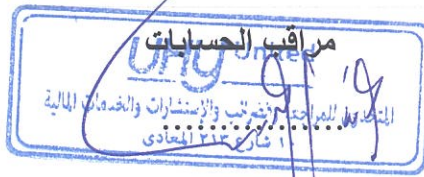 مراقب الحسابات
UHY United
المتحدون للمراجعة والضرائب والإستشارات والخدمات المالية
١ شارع ٢١٣ المعادى